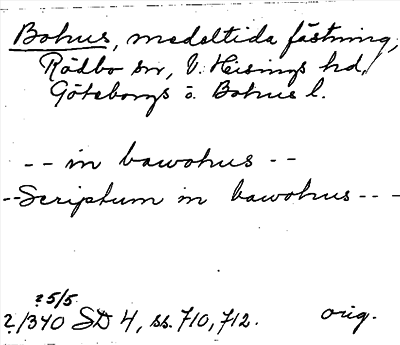 Bohus, medeltida fästning,
Rödbo sn, V. Hisings hd,
Göteborgs o. Bohus l.
-- in bawohus --
--Scriptum in bawohus ---
? 5/5
?/340 SD 4, ss. 710, 712. orig.